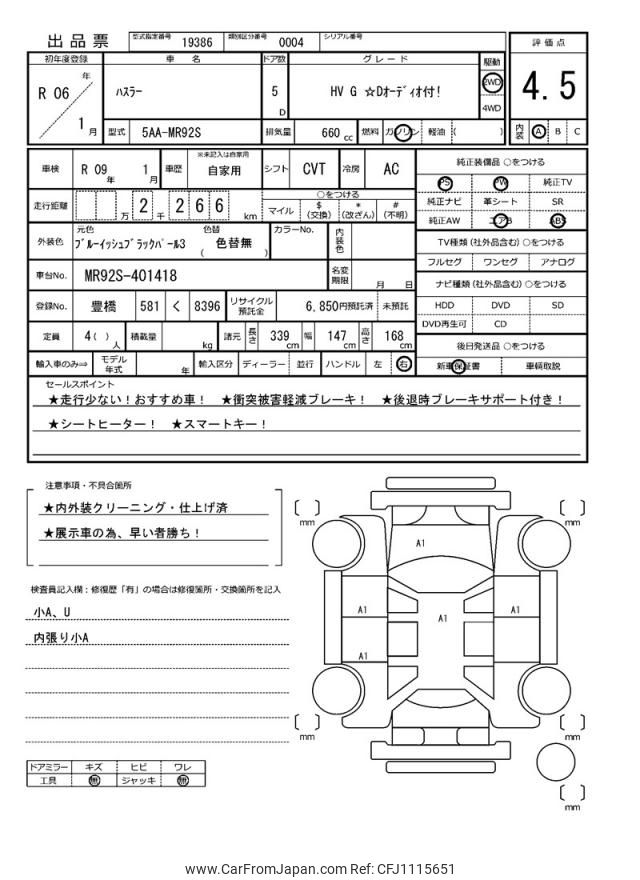 出品票 型式指定番号 19386 類別区分番号 0004 シリアル番号
評価点
初年度登録 車名 ドア数 グレード 駆動
R 06 年 1 月 ﾊｽﾗｰ 5 D HV G ☆Dｵｰﾃﾞｨｵ付! 2WD 4WD
4.5
型式 5AA-MR92S 排気量 660 cc 燃料 ガソリン 軽油 ( )
内装 A B C
車検 R 09 年 1 月 車歴 ※未記入は自家用 自家用 シフト CVT 冷房 AC
純正装備品 ○をつける
PS PW 純正TV
純正ナビ 革シート SR
純正AW エアB ABS
走行距離 万 2 千 2 6 6 km
○をつける
マイル $ (交換) * (改ざん) # (不明)
外装色 元色 ﾌﾞﾙｰｲｯｼｭﾌﾞﾗｯｸﾊﾟｰﾙ3 色替 ( 色替無 ) カラーNo. 内装色
TV種類 (社外品含む) ○をつける
フルセグ ワンセグ アナログ
車台No. MR92S-401418 名変期限 月 日
ナビ種類 (社外品含む) ○をつける
HDD DVD SD
DVD再生可 CD
登録No. 豊橋 581 く 8396 リサイクル預託金 6,850円預託済 未預託
定員 4( ) 人 積載量 kg 諸元 長さ 339 cm 幅 147 cm 高さ 168 cm
後日発送品 ○をつける
新車保証書 車輌取説
輸入車のみ⇒ モデル年式 年 輸入区分 ディーラー 並行 ハンドル 左 右
セールスポイント
★走行少ない！おすすめ車！ ★衝突被害軽減ブレーキ！ ★後退時ブレーキサポート付き！
★シートヒーター！ ★スマートキー！
注意事項・不具合箇所
★内外装クリーニング・仕上げ済
★展示車の為、早い者勝ち！
検査員記入欄：修復歴「有」の場合は修復箇所・交換箇所を記入
小A、U
内張り小A
ドアミラー キズ ヒビ ワレ
工具 無 ジャッキ 無
[ ] mm
[ ] mm
A1
A1
A1
A1
A1
[ ] mm
[ ] mm
[ ] mm
www.CarFromJapan.com Ref: CFJ1115651